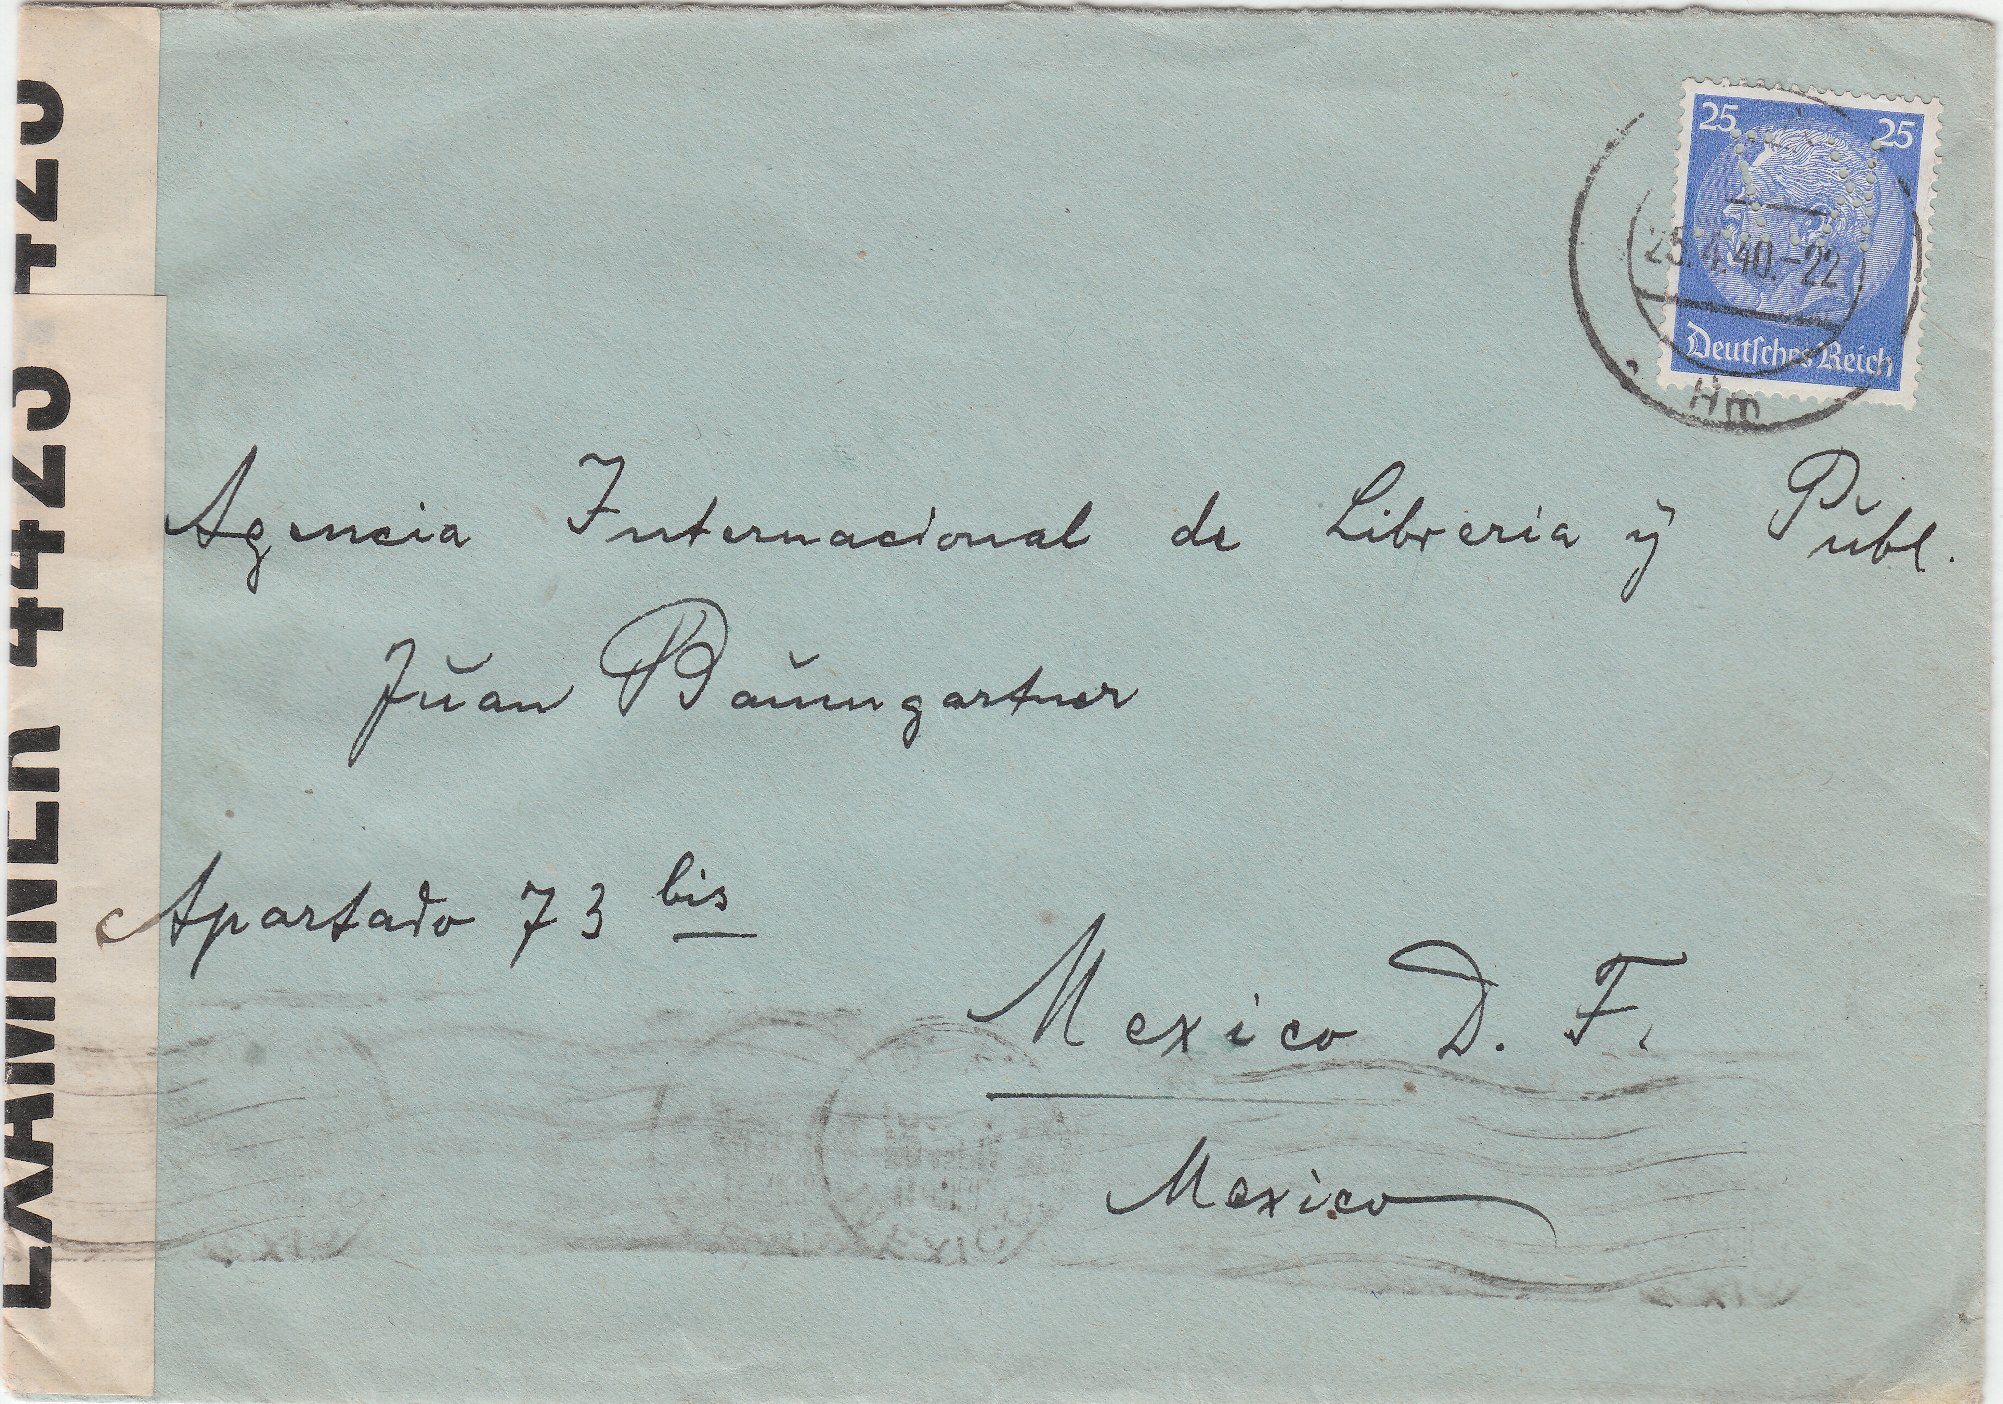 25 25
25.4.40.-22
Deutsches Reich
EXAMINER 4423
4423
Agencia Internacional de Libreria y Publ.
Juan Baumgartner
Apartado 73 bis
Mexico D. F.
Mexico